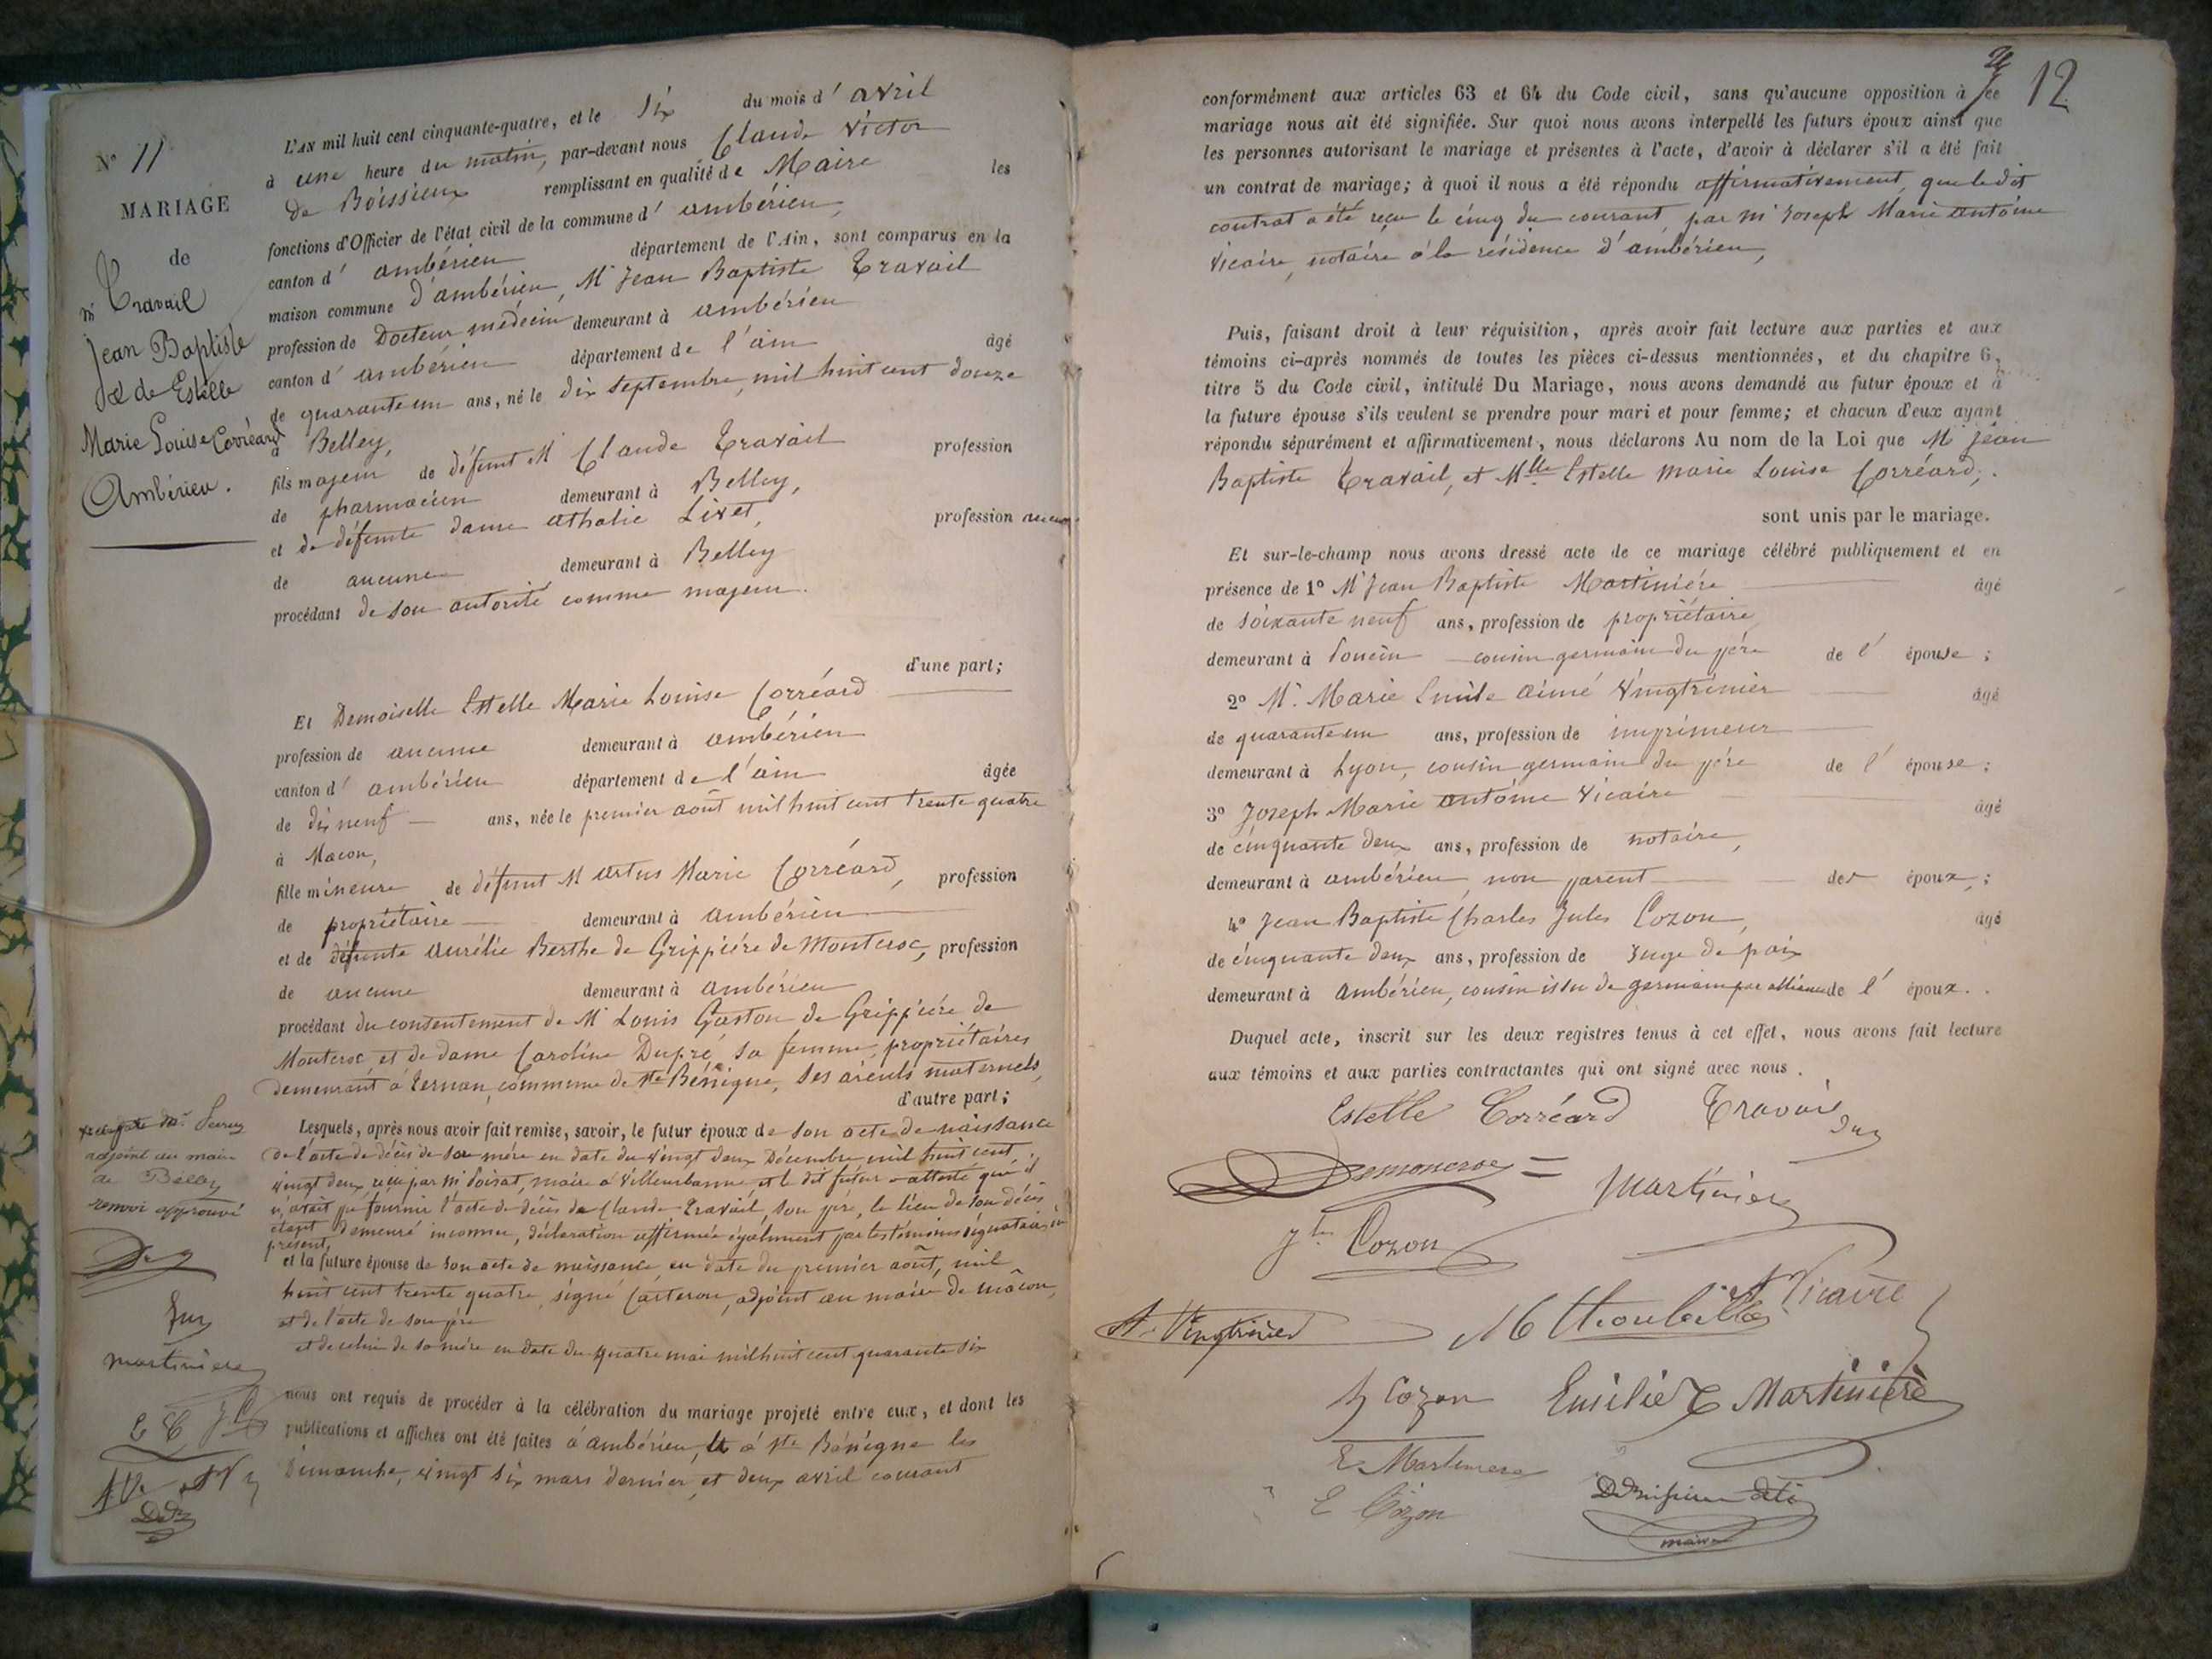 N° 11
MARIAGE
de
M Travail
Jean Baptiste
& de Estelle
Marie Louise Corréard
Ambérieu.
L'AN mil huit cent cinquante-quatre, et le six du mois d'avril
à une heure du matin, par-devant nous Claude Victor
de Boissieux remplissant en qualité de Maire les
fonctions d'Officier de l'état civil de la commune d'ambérieu,
canton d'ambérieu département de l'Ain, sont comparus en la
maison commune d'ambérieu, Mr Jean Baptiste Travail
profession de Docteur médecin demeurant à ambérieu
canton d'ambérieu département de l'ain âgé
de quarante un ans, né le dix septembre mil huit cent douze
à Belley,
fils majeur de défunt Mr Claude Travail profession
de pharmacien demeurant à Belley,
et de défunte dame athalie Livet, profession aucune
de aucune demeurant à Belley
procédant de son autorité comme majeur.
d'une part;
Et Demoiselle Estelle Marie Louise Corréard
profession de aucune demeurant à ambérieu
canton d'ambérieu département de l'ain âgée
de dix neuf ans, née le premier août mil huit cent trente quatre
à Macon,
fille mineure de défunt M artus Marie Corréard, profession
de propriétaire demeurant à ambérieu
et de défunte aurélie Berthe de Grippière de Montcroc, profession
de aucune demeurant à ambérieu
procédant du consentement de Mr Louis Gaston de Grippière de
Montcroc et de dame Caroline Dupré sa femme, propriétaires
demeurant à Ternan, commune de Ste Bénigne, ses aïeuls maternels,
d'autre part;
adjoint au maire
de Belley
renvoi approuvé
martiniere
E C
Lesquels, après nous avoir fait remise, savoir, le futur époux de son acte de naissance
de l'acte de décès de sa mère en date du vingt deux Décembre mil huit cent
vingt deux reçu par M Poirat, maire à Villeurbanne et le dit futur attesté qu'il
n'avait pu fournir l'acte de décès de Claude Travail, son père, le lieu de son décès
étant demeuré inconnu, déclaration affirmée également par les témoins signataires
présent,
et la future épouse de son acte de naissance en date du premier août, mil
huit cent trente quatre, signé Carteron, adjoint au maire de mâcon,
et de l'acte de son père
et de celui de sa mère en date du quatre mai mil huit cent quarante six
nous ont requis de procéder à la célébration du mariage projeté entre eux, et dont les
publications et affiches ont été faites à ambérieu, et à Ste Bénigne les
Dimanche, vingt six mars dernier, et deux avril courant
12
conformément aux articles 63 et 64 du Code civil, sans qu'aucune opposition à ce
mariage nous ait été signifiée. Sur quoi nous avons interpellé les futurs époux ainsi que
les personnes autorisant le mariage et présentes à l'acte, d'avoir à déclarer s'il a été fait
un contrat de mariage; à quoi il nous a été répondu affirmativement, que le dit
contrat a été reçu le cinq du courant par Mr Joseph Marie antoine
Vicaire, notaire à la résidence d'ambérieu,
Puis, faisant droit à leur réquisition, après avoir fait lecture aux parties et aux
témoins ci-après nommés de toutes les pièces ci-dessus mentionnées, et du chapitre 6,
titre 5 du Code civil, intitulé Du Mariage, nous avons demandé au futur époux et à
la future épouse s'ils veulent se prendre pour mari et pour femme; et chacun d'eux ayant
répondu séparément et affirmativement, nous déclarons Au nom de la Loi que Mr Jean
Baptiste Travail, et Mlle Estelle Marie Louise Corréard,
sont unis par le mariage.
Et sur-le-champ nous avons dressé acte de ce mariage célébré publiquement et en
présence de 1° Mr Jean Baptiste Martinière âgé
de soixante neuf ans, profession de propriétaire
demeurant à Poncin cousin germain du père de l'épouse;
2° Mr Marie Emile aimé Vingtrinier âgé
de quarante un ans, profession de imprimeur
demeurant à Lyon, cousin germain du père de l'épouse;
3° Joseph Marie antoine Vicaire âgé
de cinquante deux ans, profession de notaire,
demeurant à ambérieu, non parent des époux;
4° Jean Baptiste Charles Jules Cozon, âgé
de cinquante deux ans, profession de juge de paix
demeurant à ambérieu, cousin issu de germain par alliance de l'époux.
Duquel acte, inscrit sur les deux registres tenus à cet effet, nous avons fait lecture
aux témoins et aux parties contractantes qui ont signé avec nous.
Estelle Corréard Travail
Demoncroc
Martiniere
Jles Cozon
A Vicaire
A. Vingtrinier
Cozon Emilie C Martinière
E Martiniere
E Cozon
maire